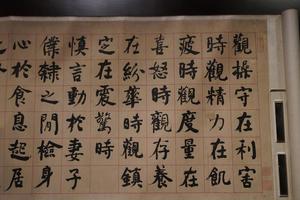 觀操守在利害
時觀精力在飢
疲時觀度量在
喜怒時觀存養
在紛華時觀鎮
定在震驚時
慎言動於妻子
僕隸之間檢身
心於食息起居